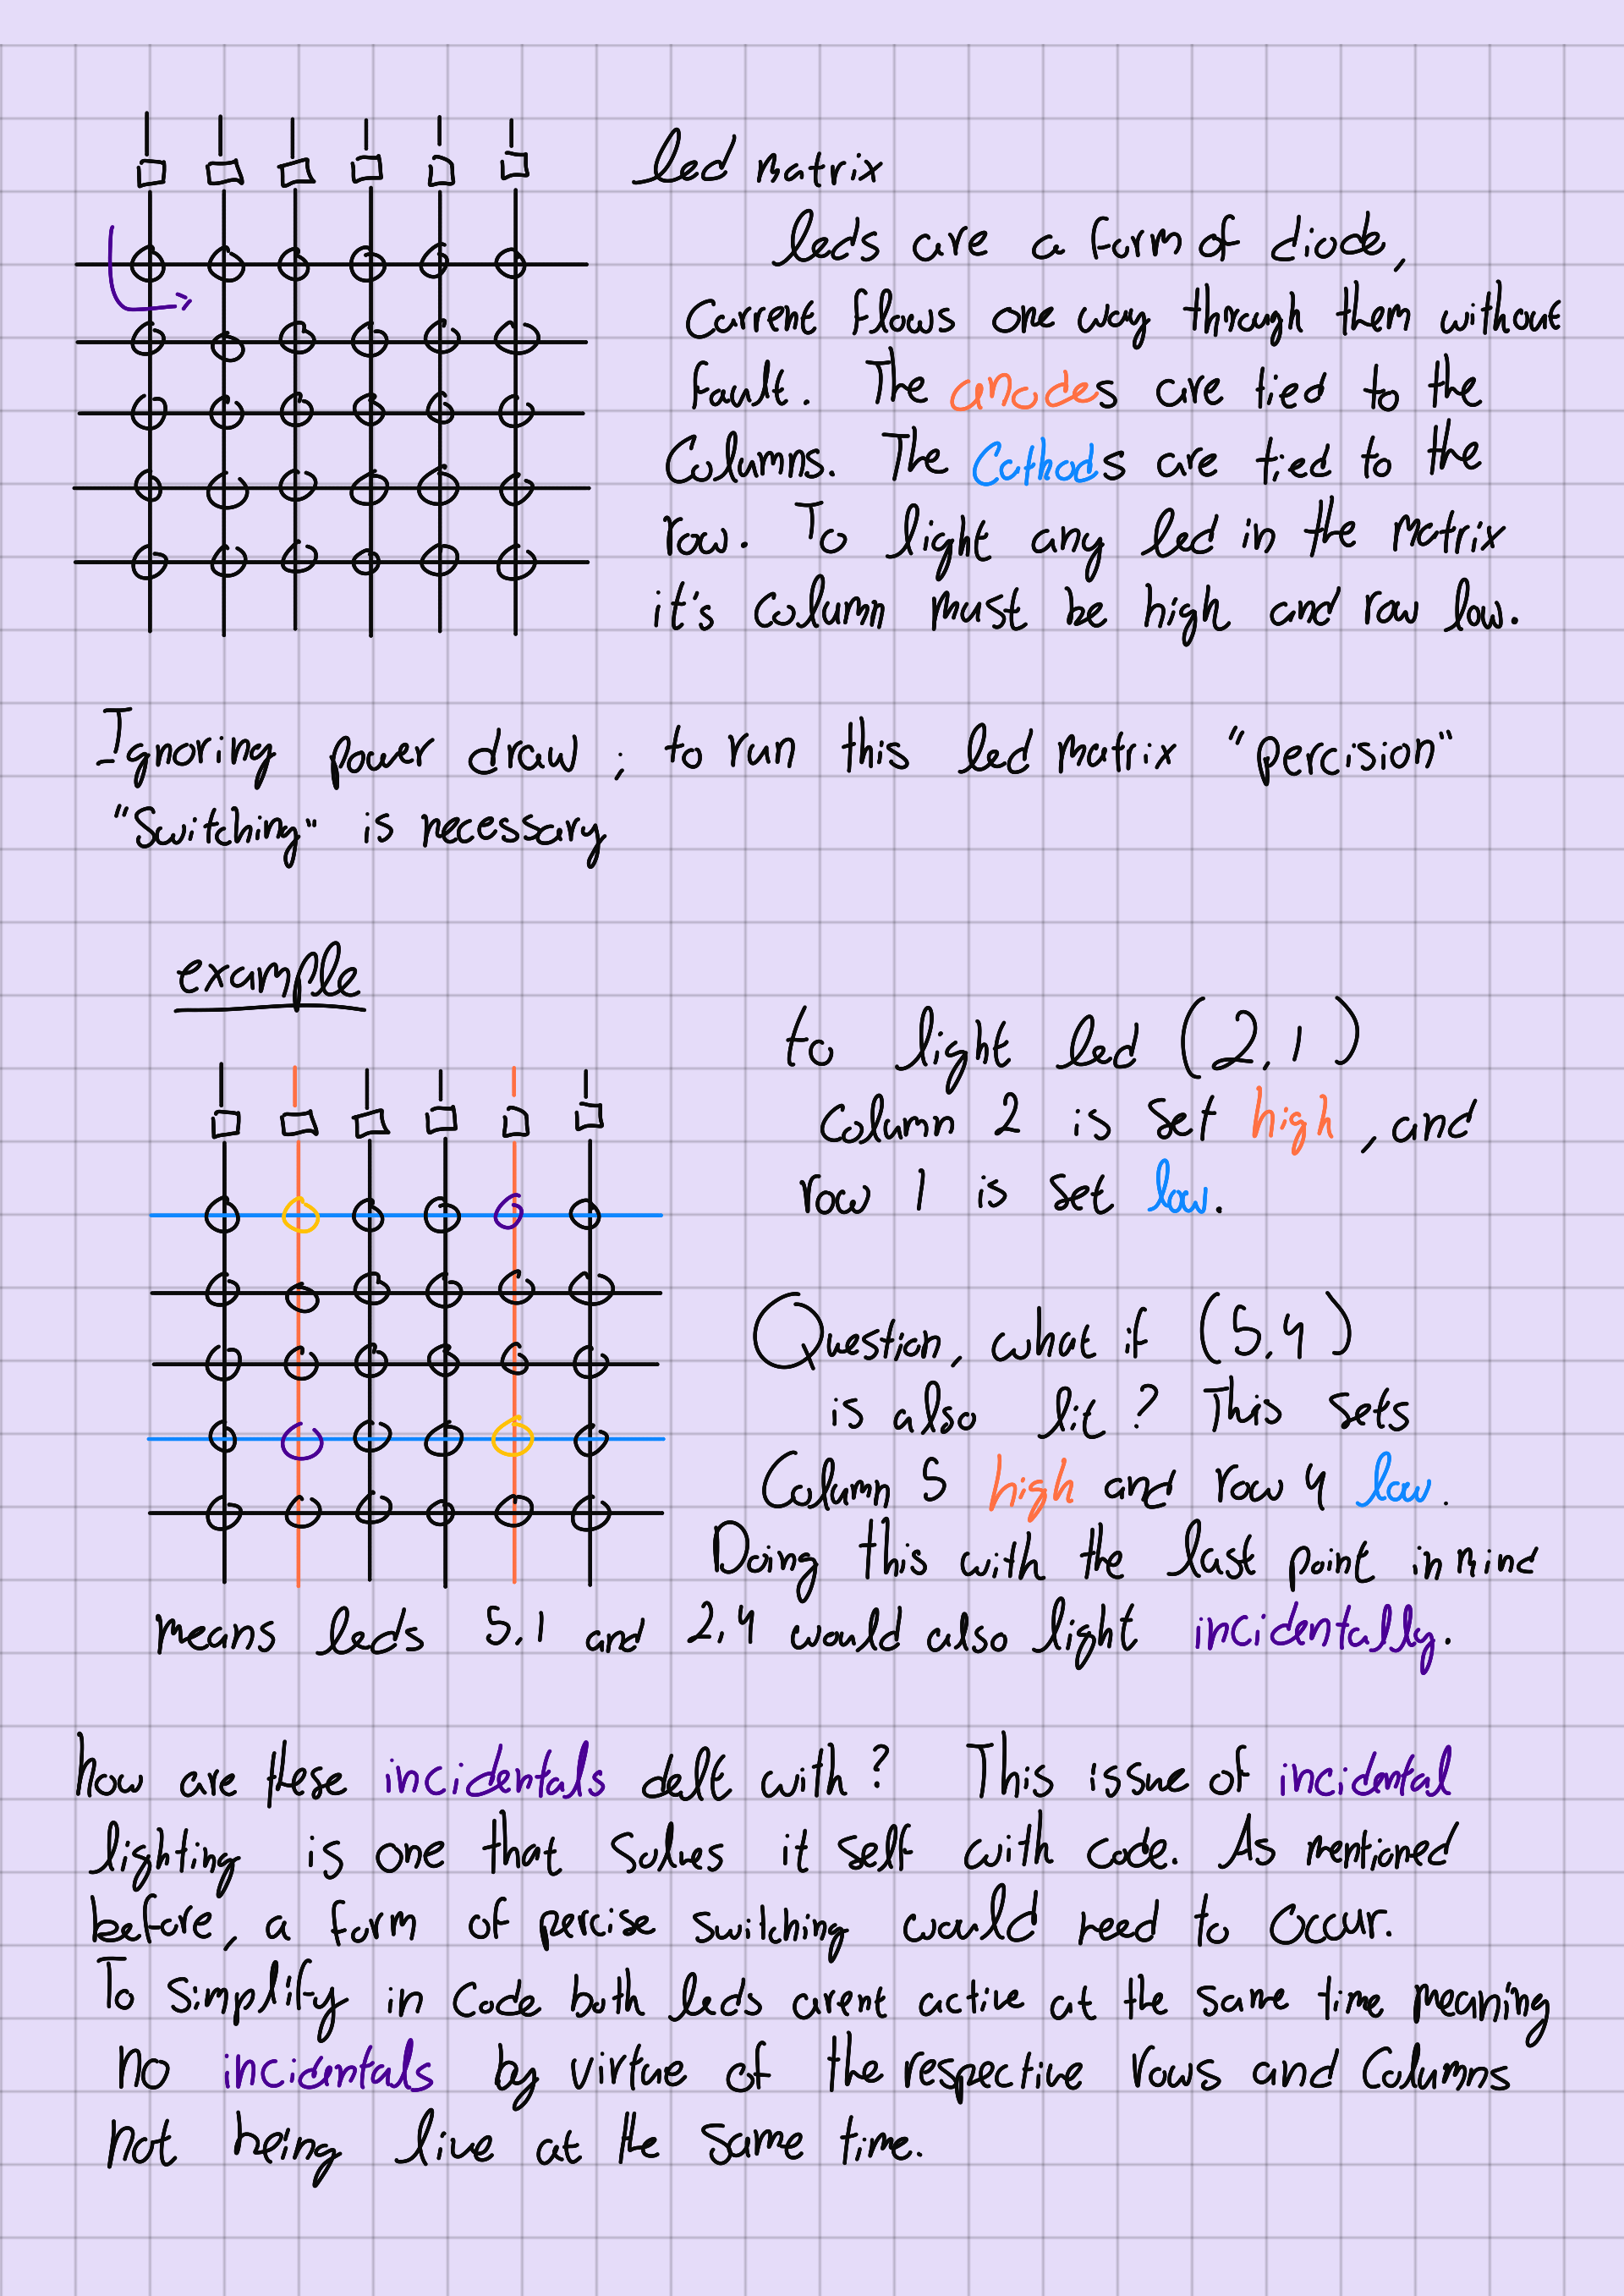 led matrix
leds are a form of diode,
Current flows one way through them without
fault. The anodes are tied to the
Columns. The Cathods are tied to the
row. To light any led in the matrix
it's column must be high and row low.
Ignoring power draw ; to run this led matrix "percision"
"Switching" is necessary
example
to light led (2,1)
column 2 is set high, and
row 1 is set low.
Question, what if (5,4)
is also lit? This sets
Column 5 high and row 4 low.
Doing this with the last point in mind
means leds 5,1 and 2,4 would also light incidentally.
how are these incidentals delt with? This issue of incidental
lighting is one that solves it self with code. As mentioned
before, a form of percise switching would need to occur.
To simplify in code both leds arent active at the same time meaning
no incidentals by virtue of the respective rows and columns
not being live at the same time.